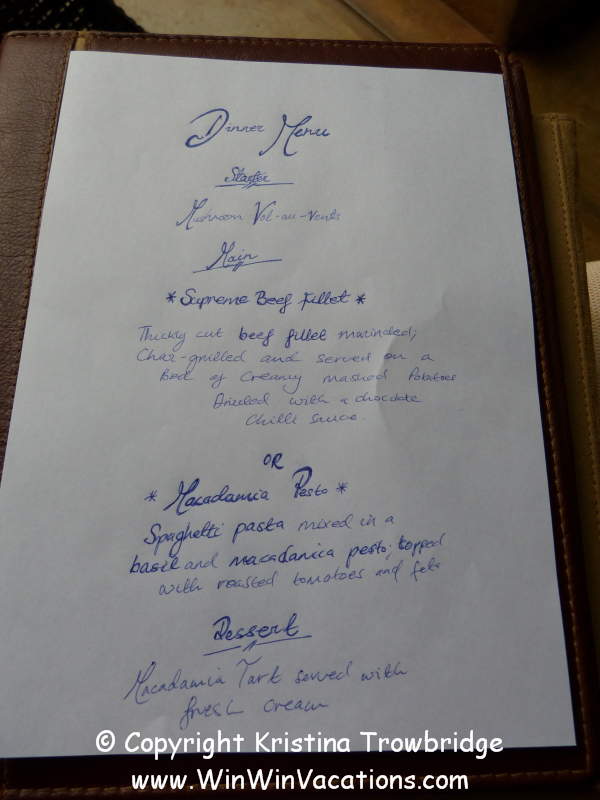 Dinner Menu
Starter
Mushroom Vol-au-Vents
Main
*Supreme Beef Fillet*
Thickly cut beef fillet marinded;
Char-grilled and served on a
Bed of Creamy mashed Potatoes
Drizzled with a chocolate
Chilli Sauce.
OR
* Macadamia Pesto *
Spaghetti pasta mixed in a
basil and macadamica pesto; topped
with roasted tomatoes and feta
Dessert
Macadamia Tart served with
fresh cream
© Copyright Kristina Trowbridge
www.WinWinVacations.com